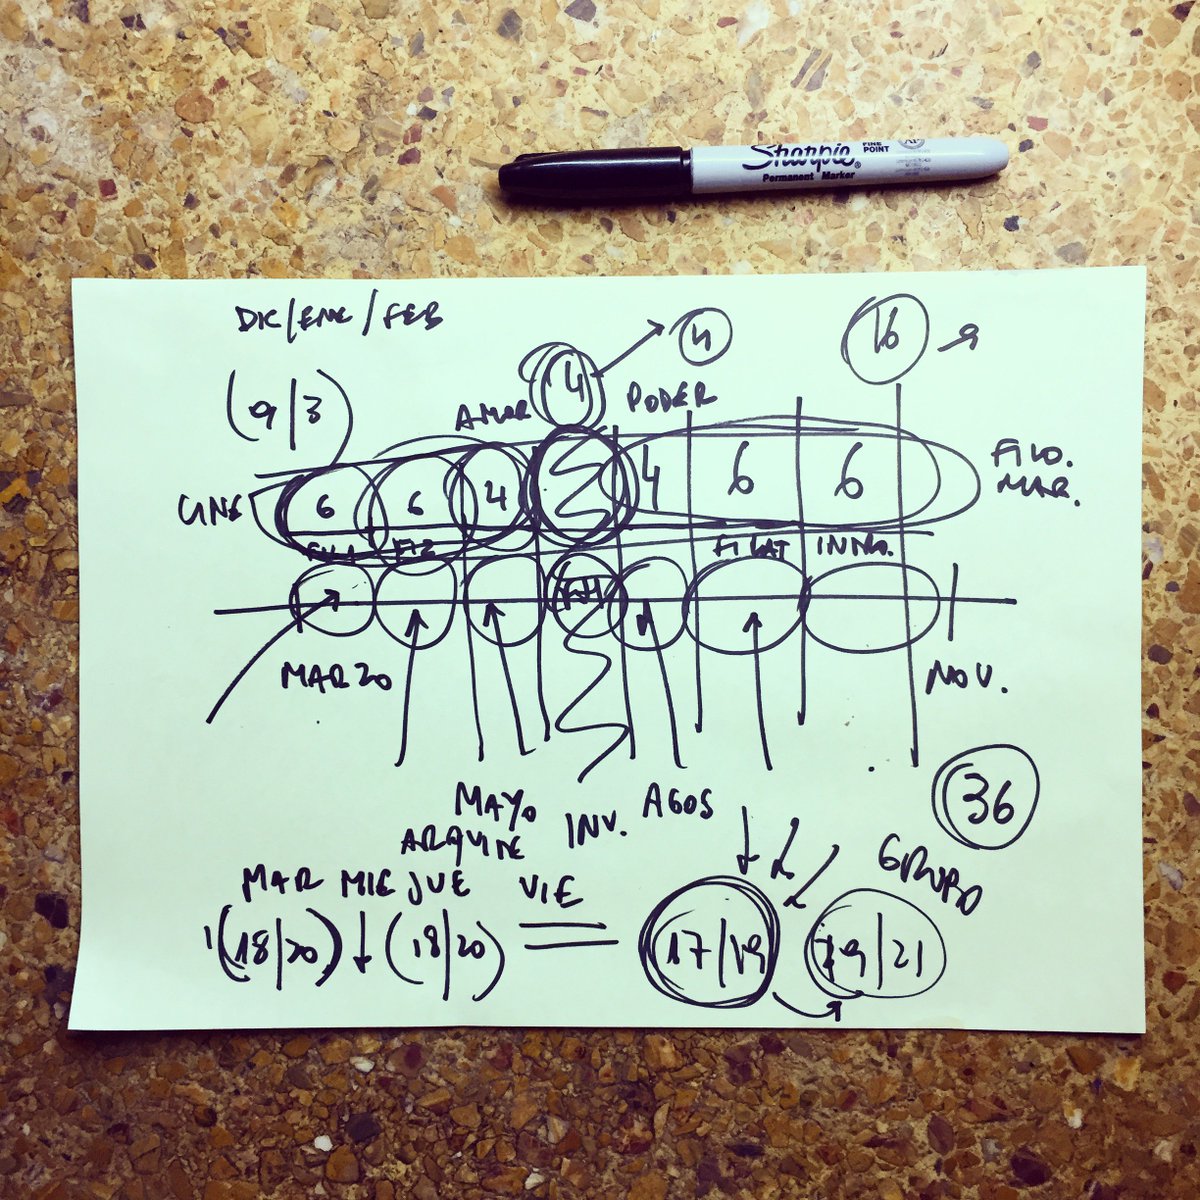 Sharpie®
FINE POINT
Permanent Marker
DIC/ENE/FEB
4
16
(9|3)
4
AMOR
PODER
CINE
6
6
4
4
6
6
FILO.
MAR.
FILAT
MARZO
NOV.
MAYO
INV.
AGOS
36
GRUPO
MAR MIE JUE VIE
(18/20) (18/20)
17/19
19/21